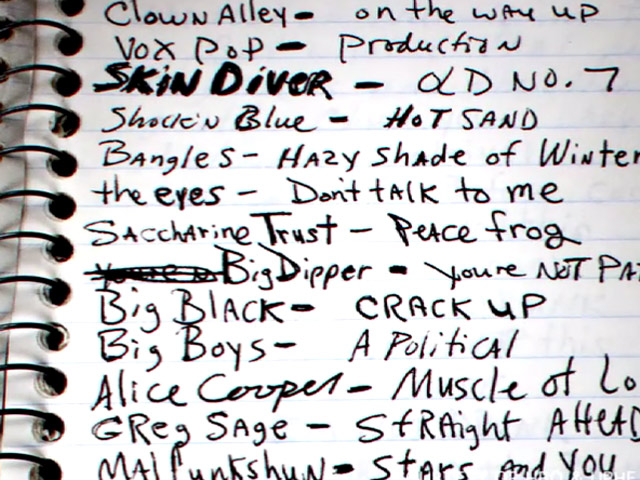 Clown Alley - on the way up
Vox Pop - Production
SKIN DIVER - OLD NO. 7
Shock'n Blue - HOT SAND
Bangles - HAZY Shade of Winter
the eyes - Don't tALK to me
SAccharine Trust - PeAce frog
Big Dipper - youre NOT PA
Big BLACK - CRACK UP
Big Boys - A PoliticAl
Alice Cooper - Muscle of Lo
GReg SAge - StRAight AHEAD
MAlfunkshun - StArs And You